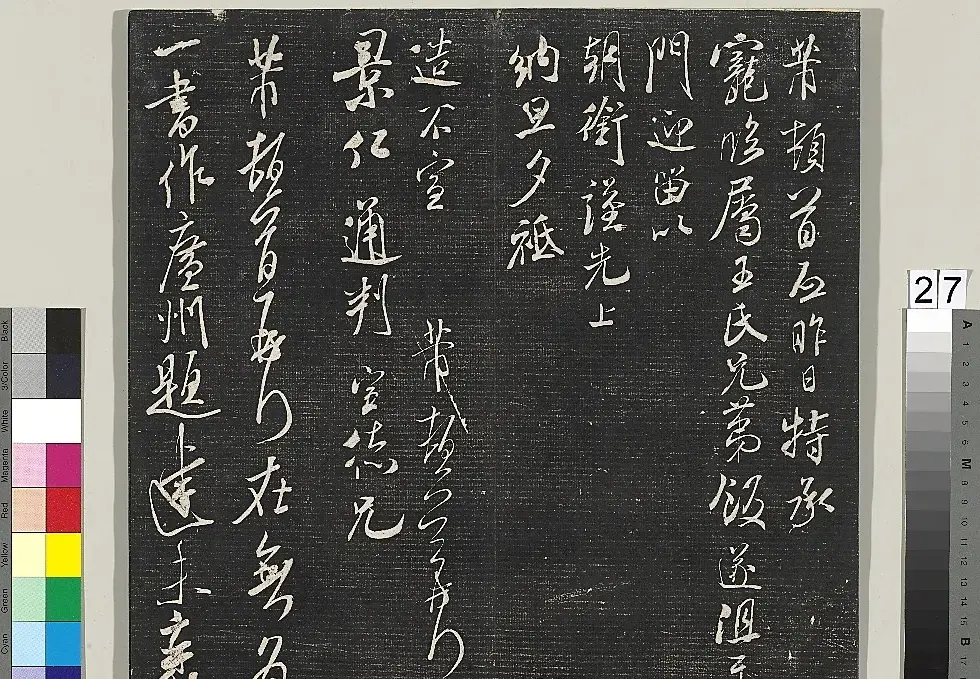 芾頓首再昨日特承
寵臨屬王氏兄弟飯遂沮
門迎留以
朝銜謹先上
納旦夕祗
造不宣 芾頓首再行
景仁通判宣德兄
芾頓首再行在無為
一書作廣州題達未
27
Black
3/Color
White
Magenta
Red
Yellow
Green
Cyan
A
1
2
3
4
5
6
M
8
9
10
11
12
13
14
15
B
17